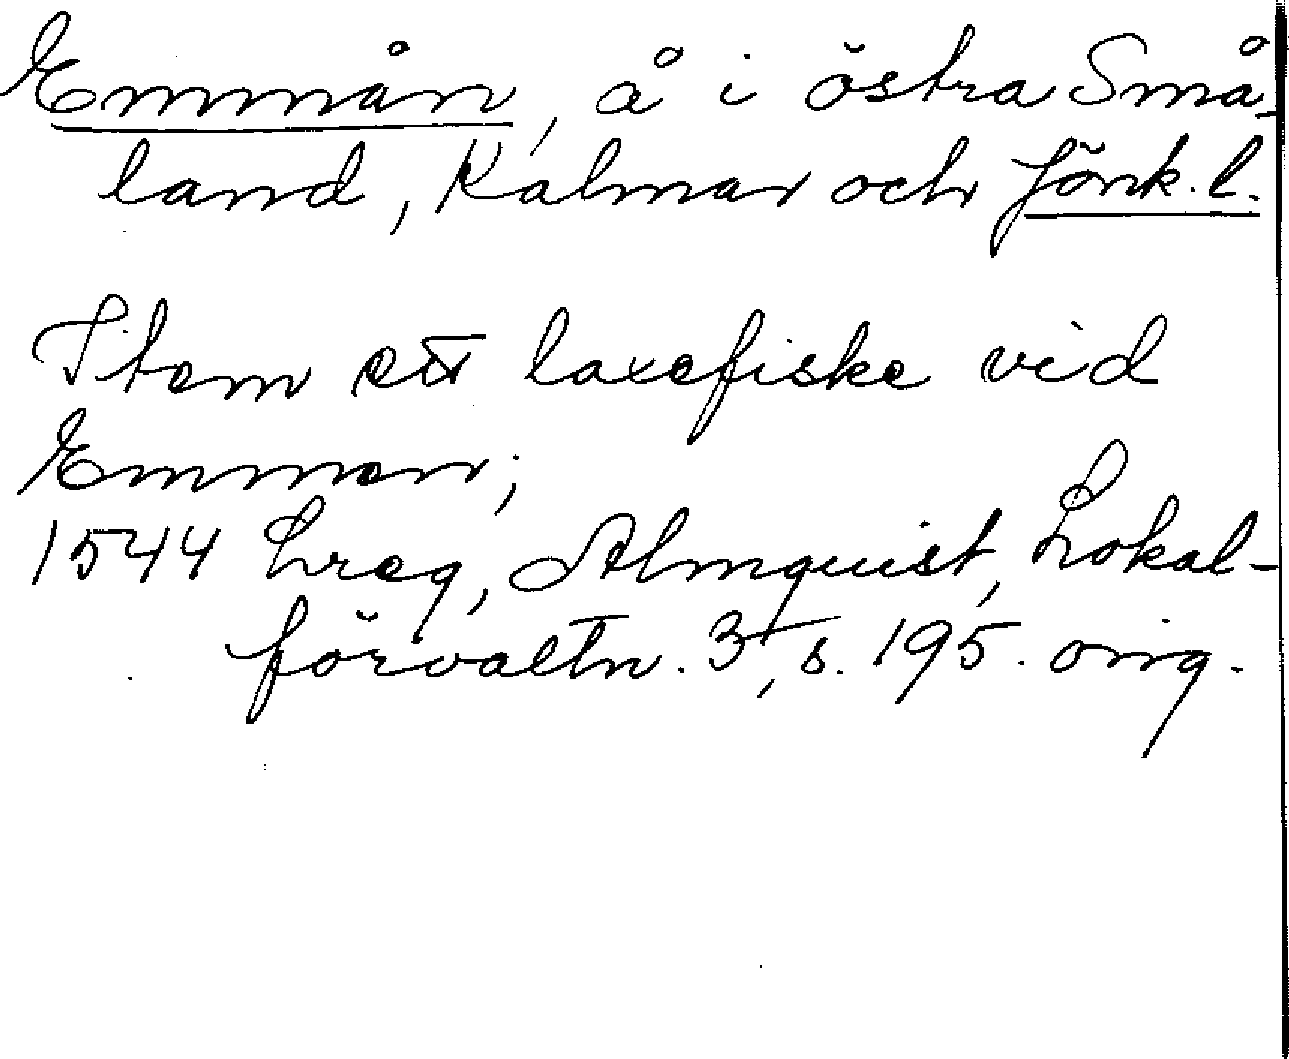 Emmån, å i östra Små-
land, Kalmar och Jönk. l.
Item ett laxefiske vid
Emmen;
1544 Lreg, Almquist, Lokal-
förvaltn. 3, s. 195. orig.